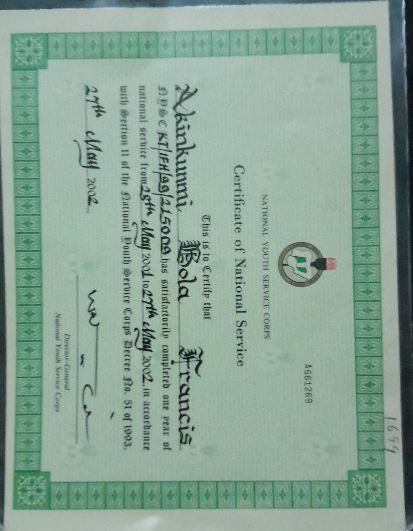 1699
A661269
NATIONAL YOUTH SERVICE CORPS
Certificate of National Service
This is to Certify that
Akinkunmi Bola Francis
NYSC KT/IFH/99/215009 has satisfactorily completed one year of
national service from 28th May 2001 to 27th May 2002, in accordance
with Section 11 of the National Youth Service Corps Decree No. 51 of 1993.
27th May 2002.
Director-General
National Youth Service Corps